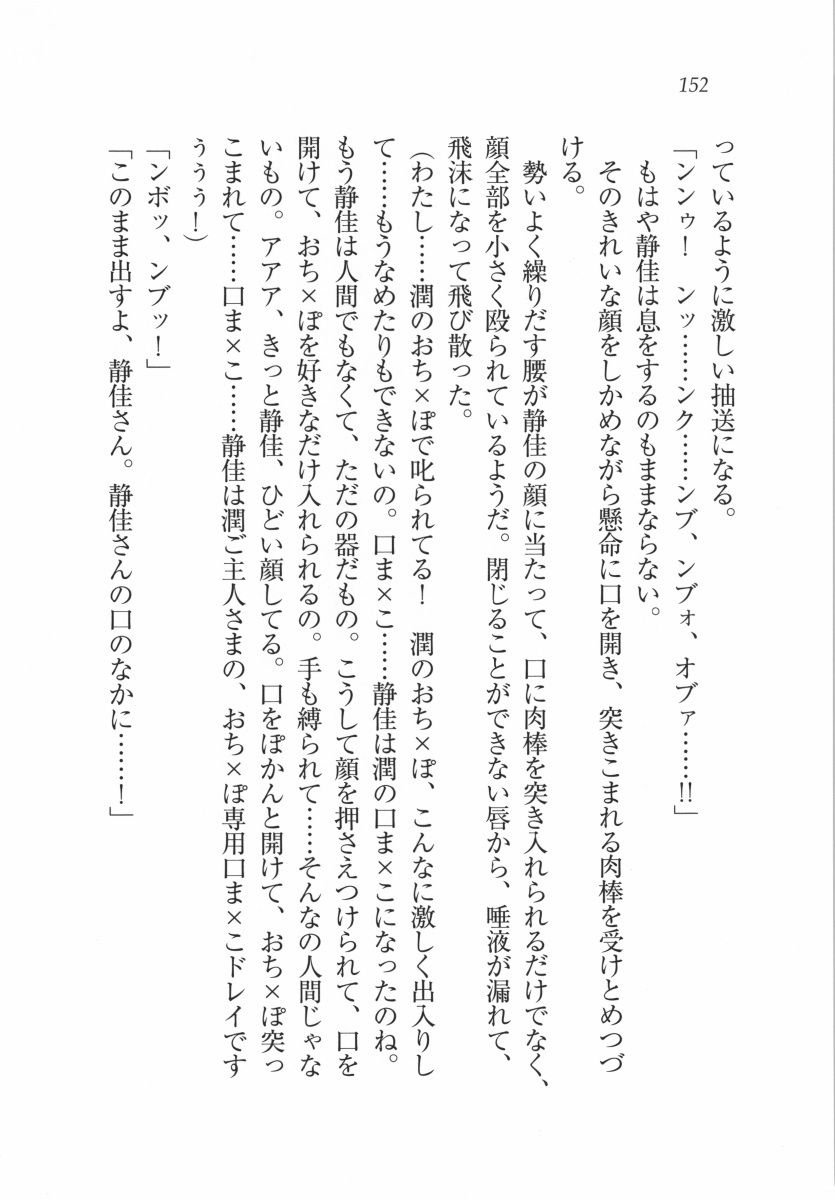 152
っているように激しい抽送になる。
「ンンゥ！　ンッ……ンク……ンブ、ンブォ、オブァ……!!」
もはや静佳は息をするのもままならない。
そのきれいな顔をしかめながら懸命に口を開き、突きこまれる肉棒を受けとめつづ
ける。
勢いよく繰りだす腰が静佳の顔に当たって、口に肉棒を突き入れられるだけでなく、
顔全部を小さく殴られているようだ。閉じることができない唇から、唾液が漏れて、
飛沫になって飛び散った。
（わたし……潤のおち×ぽで叱られてる！　潤のおち×ぽ、こんなに激しく出入りし
て……もうなめたりもできないの。口ま×こ……静佳は潤の口ま×こになったのね。
もう静佳は人間でもなくて、ただの器だもの。こうして顔を押さえつけられて、口を
開けて、おち×ぽを好きなだけ入れられるの。手も縛られて……そんなの人間じゃな
いもの。アアア、きっと静佳、ひどい顔してる。口をぽかんと開けて、おち×ぽ突っ
こまれて……口ま×こ……静佳は潤ご主人さまの、おち×ぽ専用口ま×こドレイです
ぅぅぅ！）
「ンボッ、ンブッ！」
「このまま出すよ、静佳さん。静佳さんの口のなかに……！」